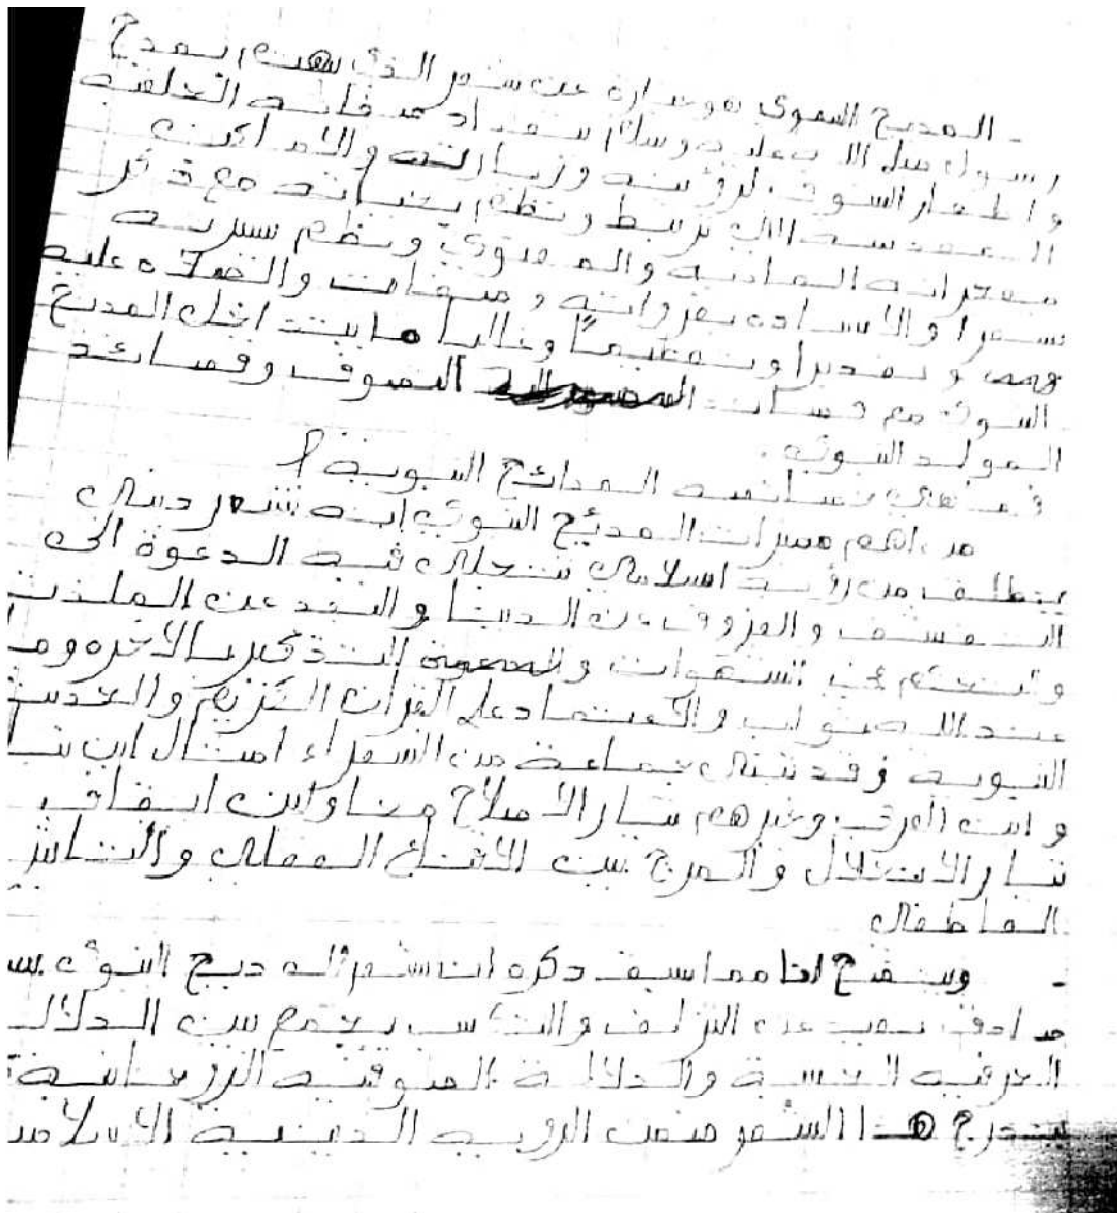 - المديح النبوي هو عبارة عن شعر الذي يهتم بمدح
رسول صلى الله عليه وسلام بتعداد صفاته الخلقية
و اظهار الشوق لرؤيته وزيارته والاماكن
المقدسة التي ترتبط ونظم بحياته مع ذكر
معجزاته المادية والمعنوية ونظم سيرته
شعرا والاشاده بغزواته و صفات والصلاة عليه
و تقديرا وتعظيماً وغالبا ما يتداخل المديح
النبوي مع قصائد التصوف وقصائد
المولد النبوي .
فما هي المدائح النبوية ؟
من اهم ميزات المديح النبوي انه شعر ديني
ينطلق من رؤية اسلامي تتجلى فيه الدعوة الى
التقشف والعزوف عن الدنيا والبعد عن الملذت
و الشهوات و التذكير بالاخره وما
عند الله ثواب والاعتماد على القران الكريم والحديث
النبوية وقد تبنى جماعة من الشعراء امثال ابن
و ابن العربي وغيرهم تيار الاصلاح
تيار الانحلال والمزج بين الاقناع العقلي والتاثير
العاطفي
- ويتضح لنا مما سبق ذكره ان شعر المديح النبوي
صادق بعيد عن التزلف والتكاسب يجمع بين الدلالة
الحرفية الحسية والدلالة الصوفية الروحانية
يندرج هذا الشعر ضمن الرويه الدينية الاسلامية